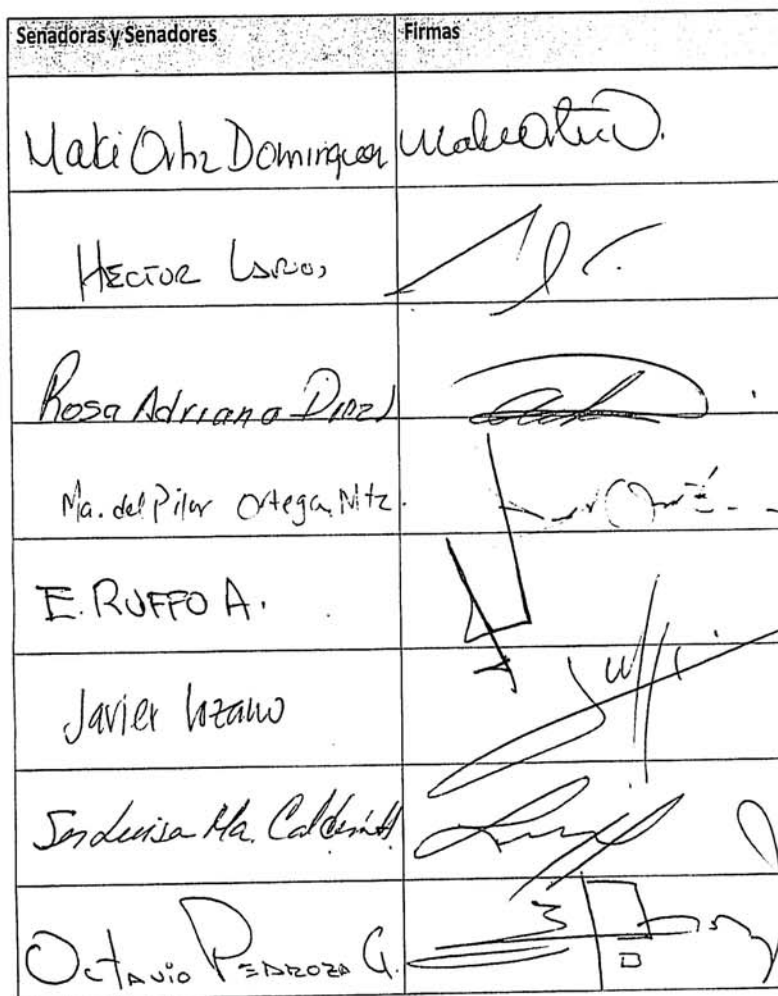 Senadoras y Senadores Firmas
Maki Ortiz Dominguez Maki Ortiz D.
HECTOR LARIOS
Rosa Adriana Diaz L
Ma. del Pilar Ortega Mtz.
E. RUFFO A.
Javier Lozano
Sen Luisa Ma. Calderón H.
OCTAVIO PEDROZA G.